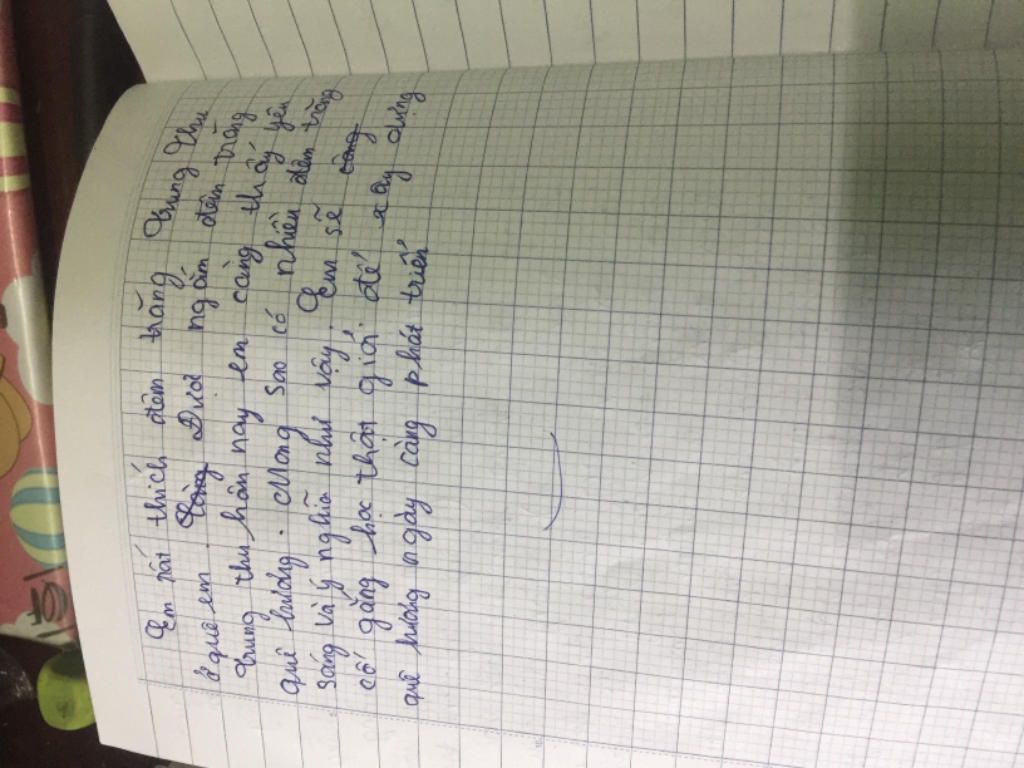 Em rất thích đêm trăng Trung Thu
ở quê em. Được ngắm đêm trăng
trung thu hôm nay em càng thấy yêu
quê hương. Mong sao có nhiều đêm trăng
sáng và ý nghĩa như vậy. Em sẽ
cố gắng học thật giỏi để xây dựng
quê hương ngày càng phát triển